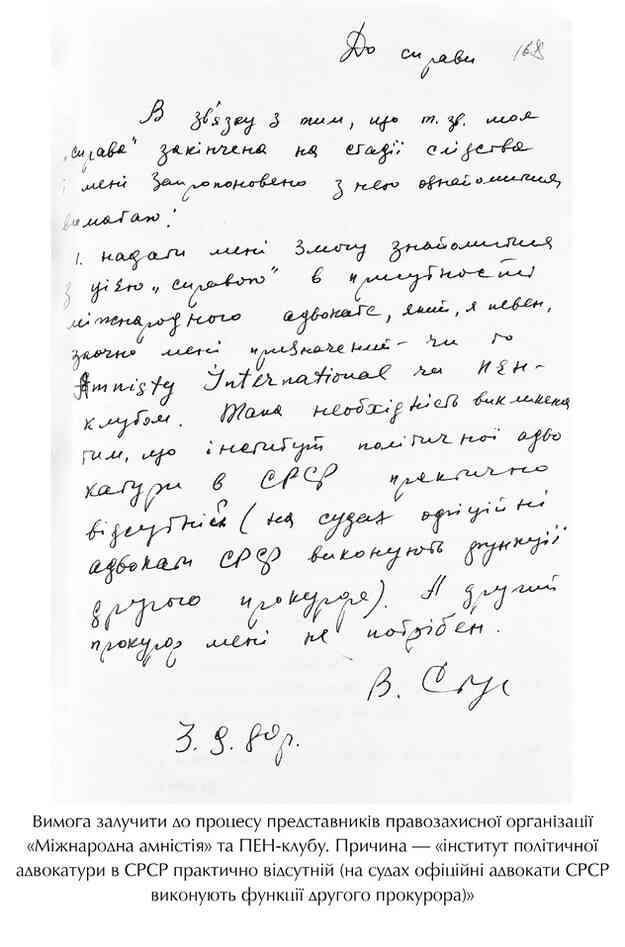 До справи 168
В зв'язку з тим, що т. зв. моя
„справа" закінчена на стадії слідства
і мені запропоновено з нею ознайомитися,
вимагаю:
1. надати мені змогу знайомитися
з цією „справою" в присутності
міжнародного адвоката, який, я певен,
заочно мені призначений – чи то
Amnisty International чи ПЕН-
клубом. Така необхідність викликана
тим, що інститут політичної адво
катури в СРСР практично
відсутній (на судах офіційні
адвокати СРСР виконують функції
другого прокурора). А другий
прокурор мені не потрібен.
В. Стус
3.9.80р.
Вимога залучити до процесу представників правозахисної організації
«Міжнародна амністія» та ПЕН-клубу. Причина — «інститут політичної
адвокатури в СРСР практично відсутній (на судах офіційні адвокати СРСР
виконують функції другого прокурора)»